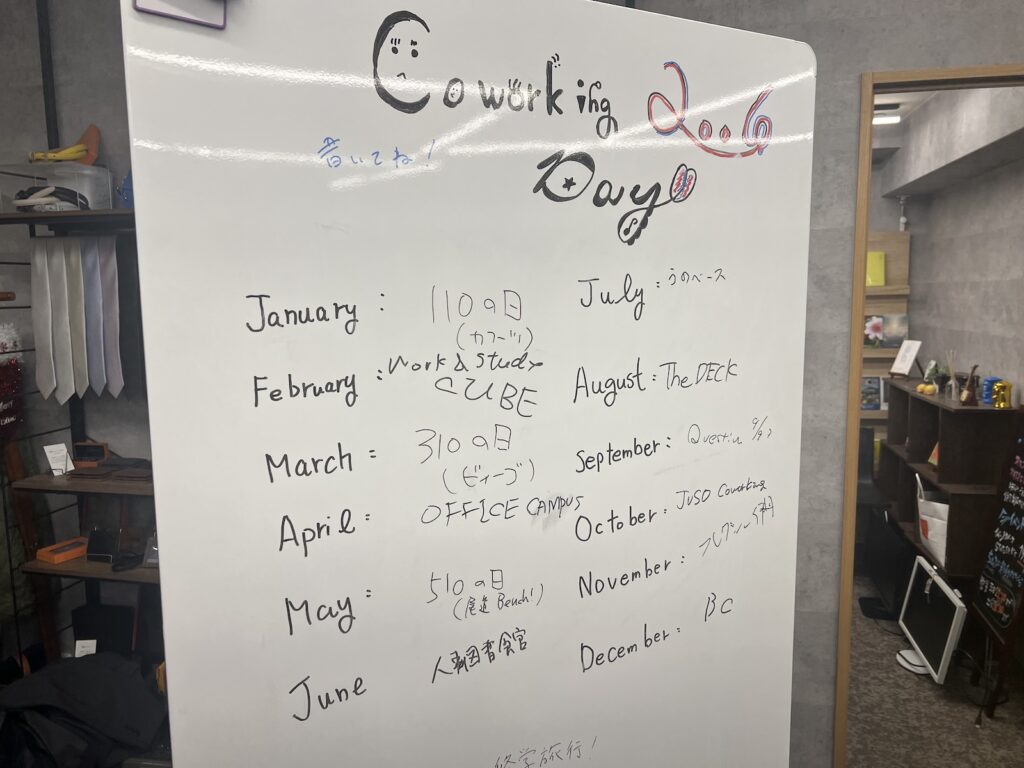 Coworking 2026
Day
書いてね!
January : 110の日
(カフーツ)
February : Work & Study
CUBE
March : 310の日
(ビィーゴ)
April : OFFICE CAMPUS
May : 510の日
(尾道 Bench!)
June 人事図書会館
July : うのベース
August : The DECK
September :
October : JUSO Coworking
November :
December : BC
修学旅行!